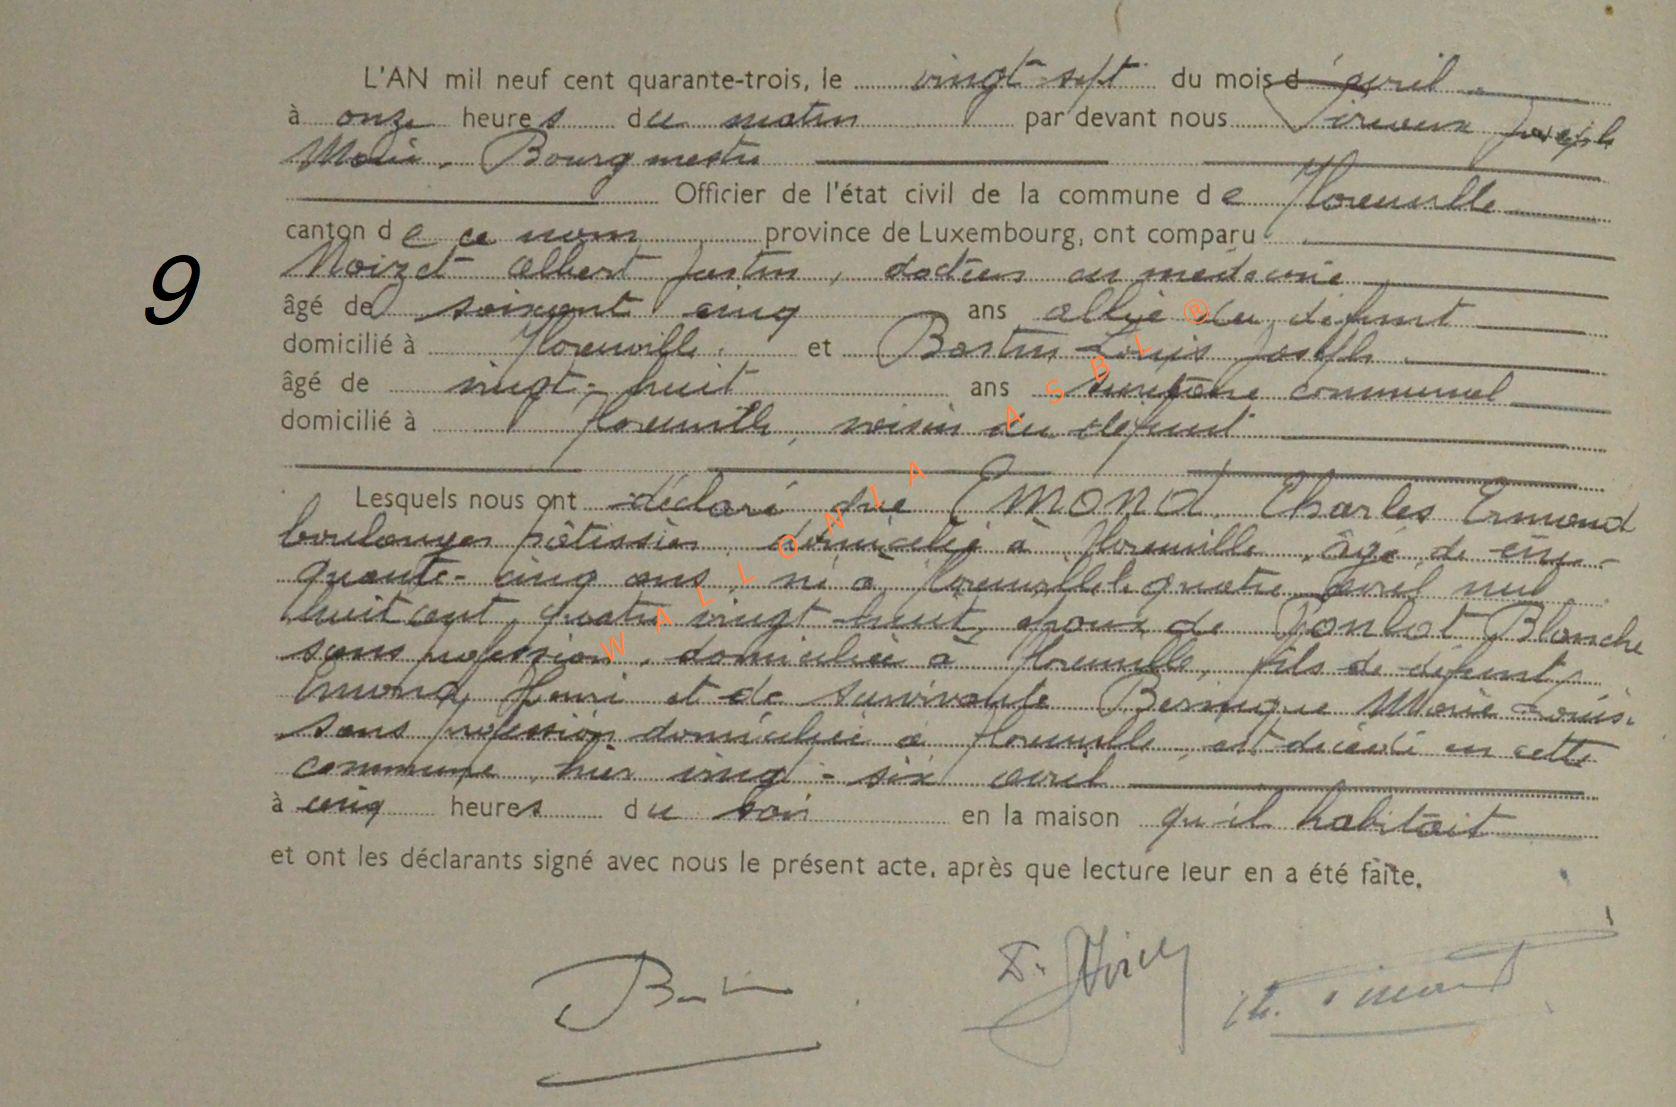 L'AN mil neuf cent quarante-trois, le vingt-sept du mois d'avril
à onze heures du matin par devant nous Joseph
Marie, Bourgmestre
Officier de l'état civil de la commune de Florenville
canton de ce nom province de Luxembourg, ont comparu
9
Noizet Albert Justin, docteur en médecine
âgé de soixante cinq ans allié du défunt
domicilié à Florenville et Bastin Louis Joseph
âgé de vingt-huit ans secrétaire communal
domicilié à Florenville, voisin du défunt
Lesquels nous ont déclaré que EMOND Charles Ermond
boulanger pâtissier, domicilié à Florenville, âgé de cin-
quante-cinq ans, né à Florenville le quatre avril mil
huit cent quatre vingt-huit, époux de Ponlot Blanche
sans profession, domiciliée à Florenville, fils de défunt
Emond Henri et de survivante Bernique Marie-Louise
sans profession domiciliée à Florenville, est décédé en cette
commune, hier vingt-six avril
à cinq heures du soir en la maison qu'il habitait
et ont les déclarants signé avec nous le présent acte, après que lecture leur en a été faite.
WALLONIA ASBL ®